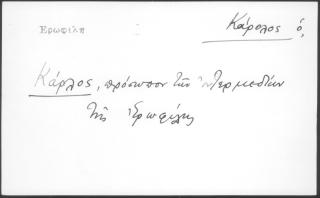 Ερωφίλη
Κάρολος ὁ,
Κάρλος, πρόσωπον τῶν ἰντερμεδίων
τῆς Ἐρωφίλης